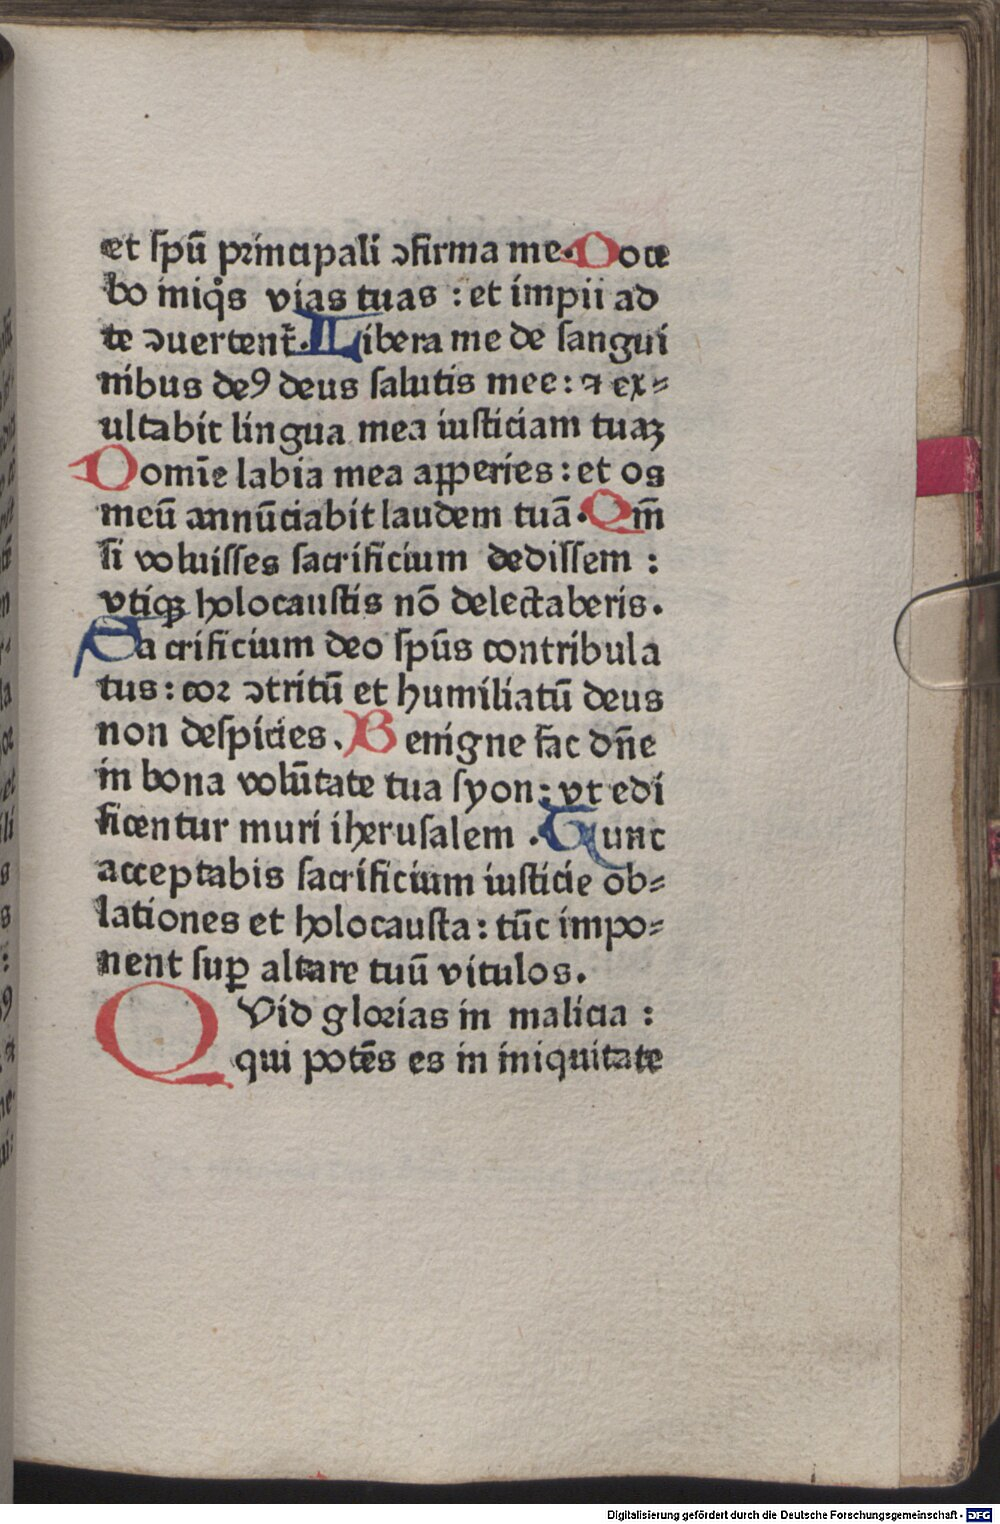 et spū principali ɔfirma me. Doce
bo iniqͦs vias tuas : et impii ad
te ɔuertent̄. Libera me de sangui
nibus deꝰ deus salutis mee: ⁊ ex⸗
ultabit lingua mea iusticiam tuaꝫ
Domīe labia mea apperies : et os
meū annūciabit laudem tuā. Qm̄
si voluisses sacrificium dedissem :
vtiqꝫ holocaustis nō delectaberis.
Sacrificium deo spūs contribula
tus : coꝛ ɔtritū et humiliatū deus
non despicies. Benigne fac dn̄e
in bona volūtate tua syon : vt edi
ficentur muri iherusalem . Tunc
acceptabis sacrificium iusticie ob⸗
lationes et holocausta : tūc impo⸗
nent suꝑ altare tuū vitulos.
QVid gloꝛias in malicia :
qui potēs es in iniquitate
Digitalisierung gefördert durch die Deutsche Forschungsgemeinschaft - DFG